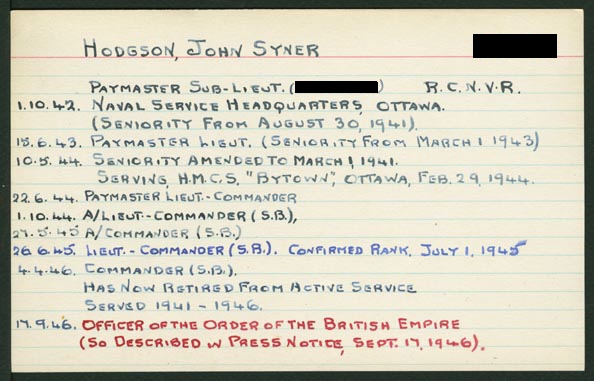 HODGSON, JOHN SYNER
PAYMASTER SUB-LIEUT. ( ) R.C.N.V.R.
1.10.42. NAVAL SERVICE HEADQUARTERS, OTTAWA.
(SENIORITY FROM AUGUST 30, 1941).
15.6.43. PAYMASTER LIEUT. (SENIORITY FROM MARCH 1 1943)
10.5.44. SENIORITY AMENDED TO MARCH 1, 1941.
SERVING, H.M.C.S. "BYTOWN", OTTAWA, FEB. 29, 1944.
22.6.44. PAYMASTER LIEUT.-COMMANDER
1.10.44. A/LIEUT.-COMMANDER (S.B.),
27.5.45 A/COMMANDER (S.B.)
26.6.45. LIEUT.-COMMANDER (S.B.). CONFIRMED RANK, JULY 1, 1945
4.4.46. COMMANDER (S.B.).
HAS NOW RETIRED FROM ACTIVE SERVICE
SERVED 1941 - 1946.
17.9.46. OFFICER OF THE ORDER OF THE BRITISH EMPIRE
(SO DESCRIBED IN PRESS NOTICE, SEPT. 17, 1946).